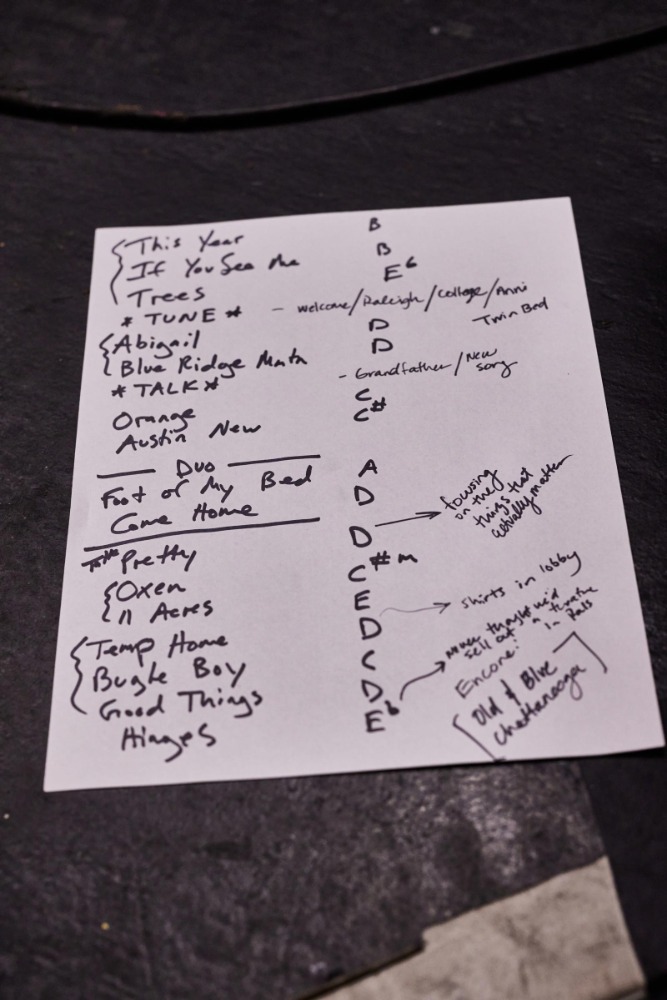 This Year B
If You See Me B
Trees E♭
* TUNE * - welcome/Raleigh/College/Anni
Twin Bed
Abigail D
Blue Ridge Mntn D
* TALK * - Grandfather/New
song
Orange C
Austin New C#
Duo
Foot of My Bed A
Come Home D
Pretty D → focusing
on the
things that
actually matter
Oxen C#m
11 Acres E → shirts in lobby
Temp Home D
Bugle Boy C
Good Things D → never thought we'd
sell out a theatre
in Rals
Hinges E♭
Encore:
Old & Blue
Chattanooga